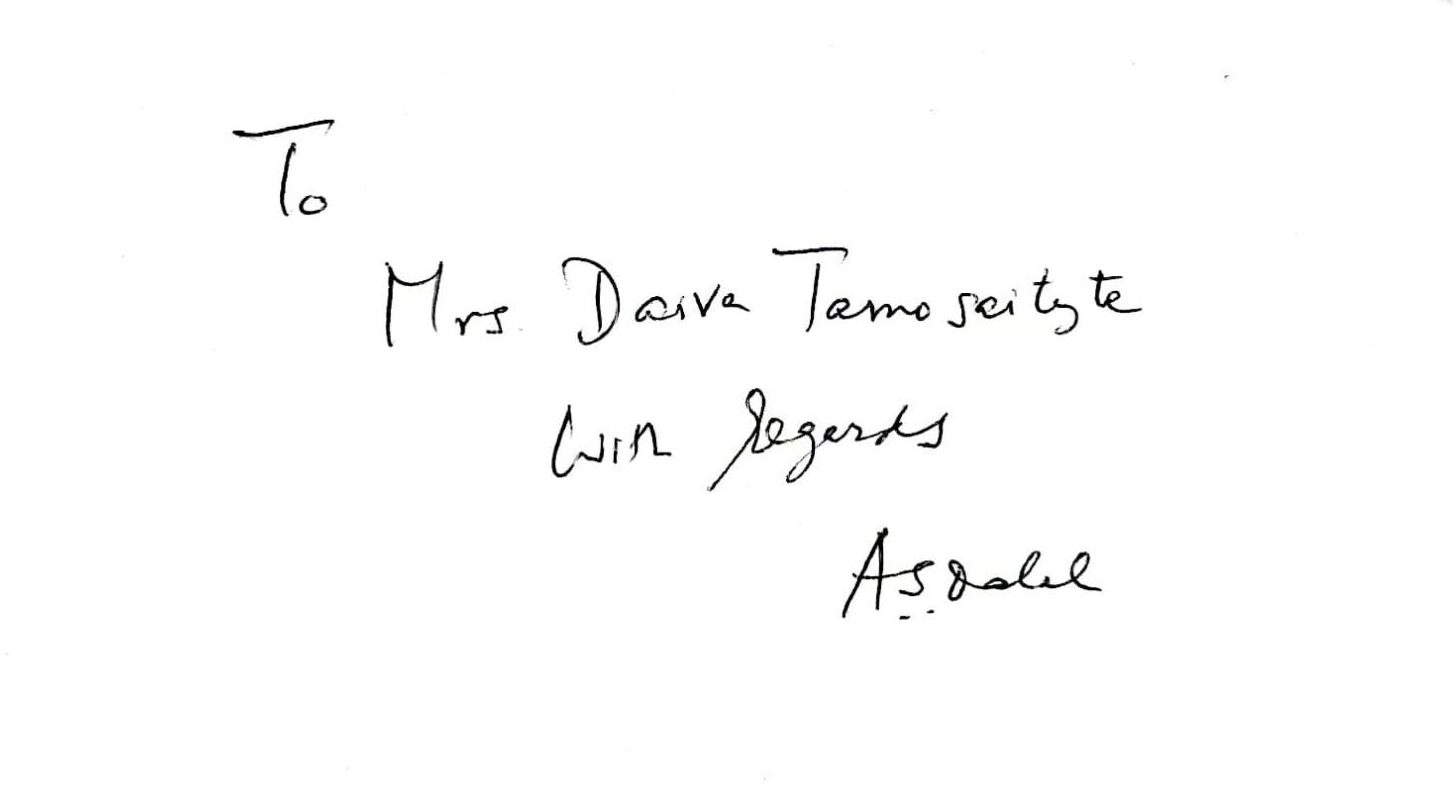 To
Mrs. Daiva Tamosaityte
With regards
A.S. Dalal